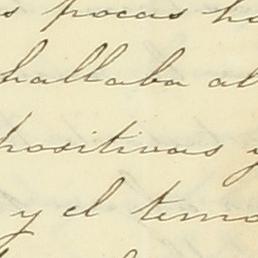 s pocas ho
hallaba al
positivas y
y el temo